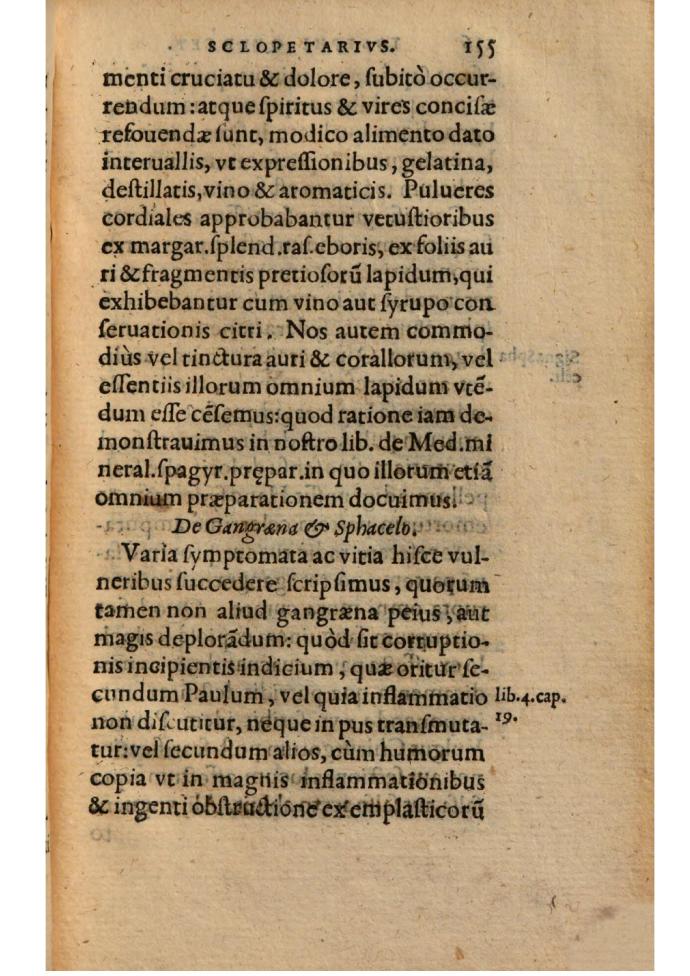 SCLOPETARIVS. 155
menti cruciatu & dolore, ſubitò occur-
rendum: atque ſpiritus & vires conciſæ
refouendæ ſunt, modico alimento dato
interuallis, vt expreſſionibus, gelatina,
deſtillatis, vino & aromaticis. Pulueres
cordiales approbabantur vetuſtioribus
ex margar. ſplend. raſ. eboris, ex foliis au
ri & fragmentis pretioſorũ lapidum, qui
exhibebantur cum vino aut ſyrupo con
ſeruationis citri. Nos autem commo-
diùs vel tinctura auri & corallorum, vel
eſſentiis illorum omnium lapidum vtẽ-
dum eſſe cẽſemus: quod ratione iam de-
monſtrauimus in noſtro lib. de Med. mi
neral. ſpagyr. prępar. in quo illorum etiã
omnium præparationem docuimus.
De Gangræna & Sphacelo.
Varia ſymptomata ac vitia hiſce vul-
neribus ſuccedere ſcripſimus, quorum
tamen non aliud gangræna peius, aut
magis deplorãdum: quòd ſit corruptio-
nis incipientis indicium, quæ oritur ſe-
cundum Paulum, vel quia inflammatio lib. 4. cap.
non diſcutitur, neque in pus tranſmuta- 19.
tur: vel ſecundum alios, cùm humorum
copia vt in magnis inflammationibus
& ingenti obſtructione ex emplaſticorũ